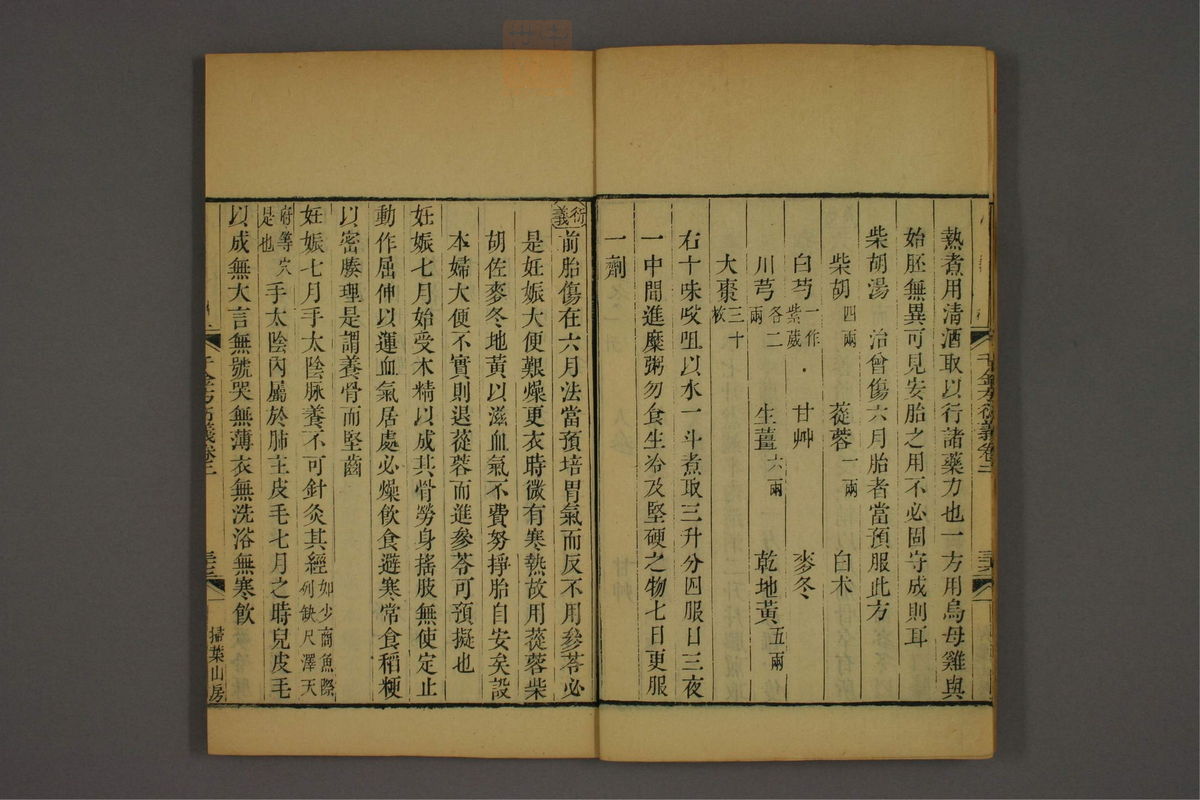 熱煮用清酒取以行諸藥力也一方用烏母雞與
始胚無異可見安胎之用不必固守成則耳
柴胡湯 治曾傷六月胎者當預服此方
柴胡四兩 蓯蓉一兩 白术
白芍一作紫葳 甘艸 麥冬
川芎各二兩 生薑六兩 乾地黃五兩
大棗三十枚
右十味㕮咀以水一斗煮取三升分四服日三夜
一中間進糜粥勿食生冷及堅硬之物七日更服
一劑
衍義
前胎傷在六月法當預培胃氣而反不用參苓必
是妊娠大便艱燥更衣時微有寒熱故用蓯蓉柴
胡佐麥冬地黃以滋血氣不費努掙胎自安矣設
本婦大便不實則退蓯蓉而進參苓可預擬也
妊娠七月始受木精以成其骨勞身搖肢無使定止
動作屈伸以運血氣居處必燥飲食避寒常食稻粳
以密腠理是謂養骨而堅齒
妊娠七月手太陰脉養不可針灸其經如少商魚際列缺尺澤天
府等穴是也手太陰內屬於肺主皮毛七月之時兒皮毛
以成無大言無號哭無薄衣無洗浴無寒飲
千金方衍義卷二
掃葉山房